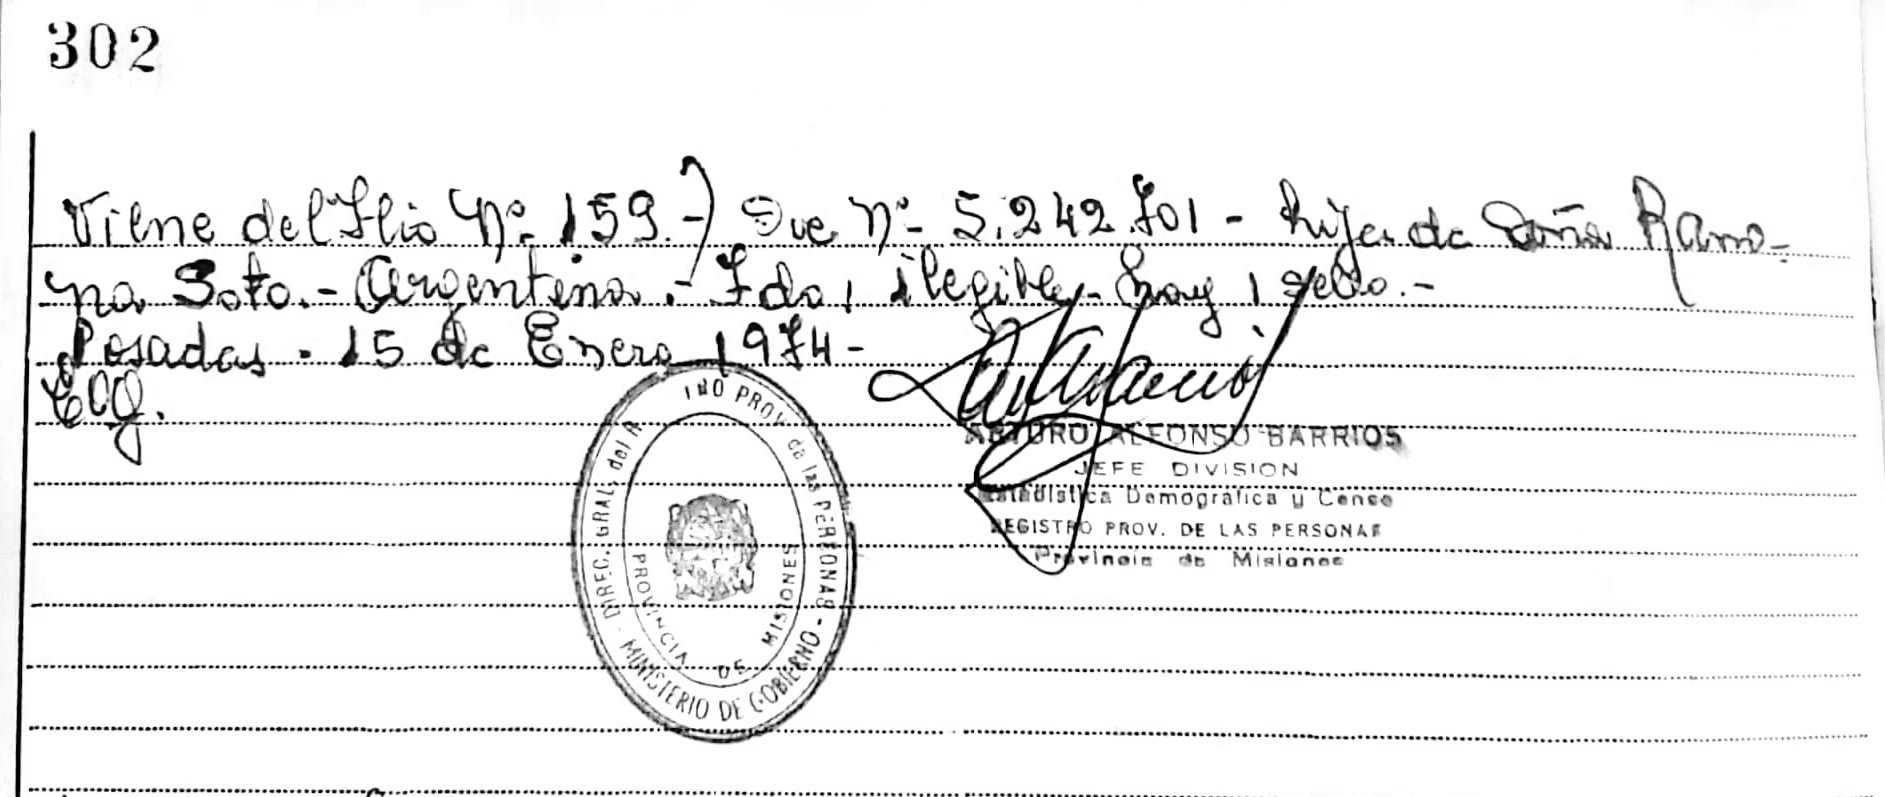 302
Viene del Flio Nº 159.-) Que Nº 5.242.701 - hija de Doña Ramo-
na Soto.- Argentina.- Fdo, ilegible- hay 1 sello.-
Posadas - 15 de Enero 1974-
ARTURO ALFONSO BARRIOS
JEFE DIVISION
Estadistica Demográfica y Censo
REGISTRO PROV. DE LAS PERSONAS
Provincia de Misiones
DIREC. GRAL. del R PROV. de las PERSONAS - MINISTERIO DE GOBIERNO -
PROVINCIA DE MISIONES